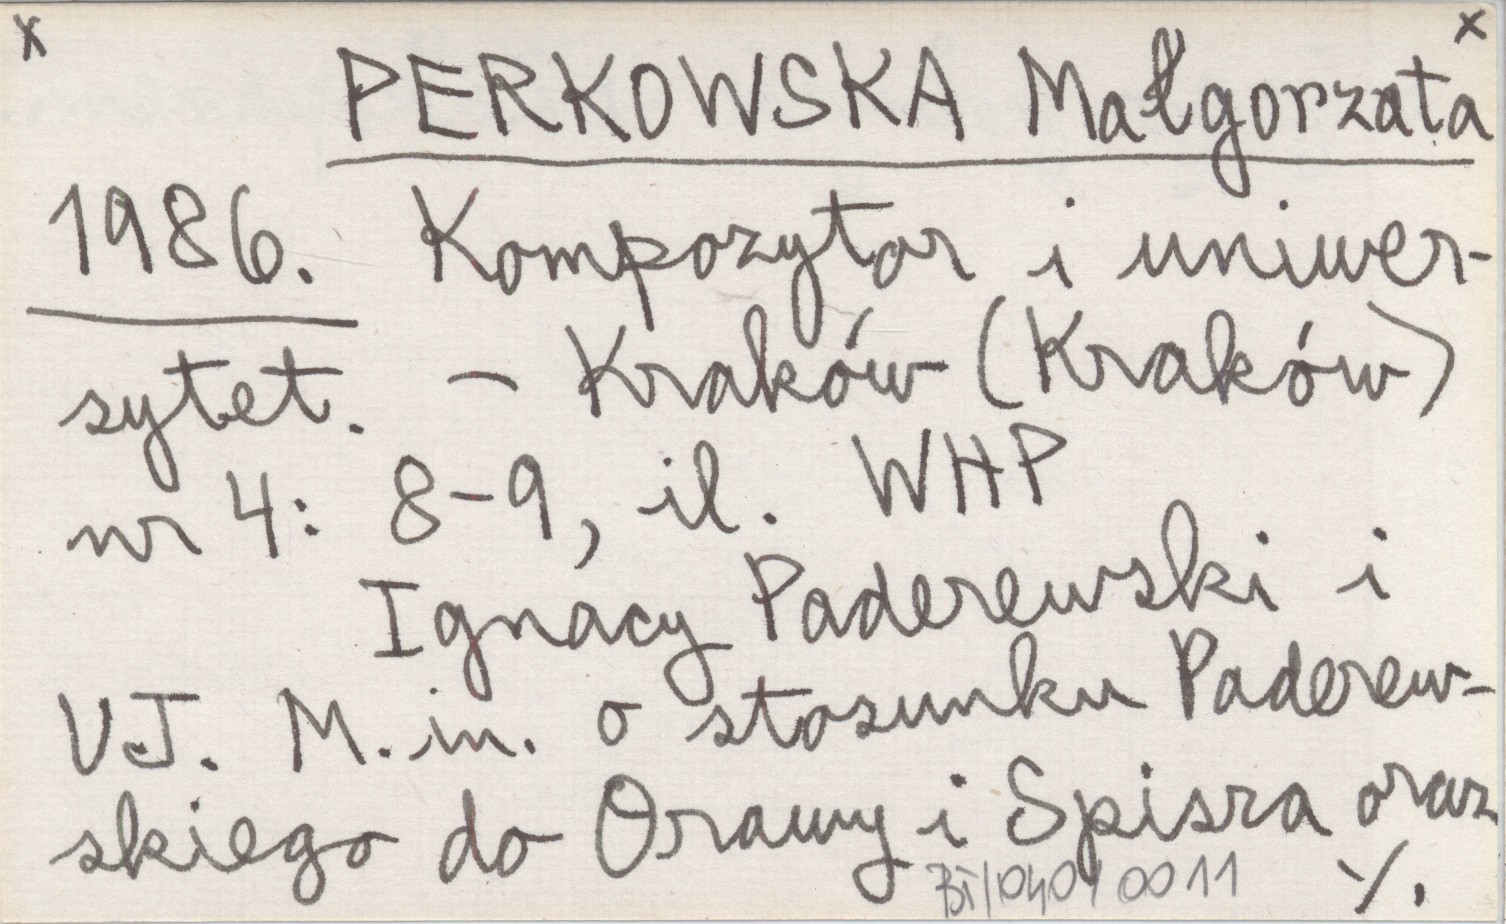 x x
PERKOWSKA Małgorzata
1986. Kompozytor i uniwer-
sytet. - Kraków (Kraków)
nr 4: 8-9, il. WHP
Ignacy Paderewski i
UJ. M.in. o stosunku Paderew-
skiego do Orawy i Spisza oraz
BT/040/0011 ./.